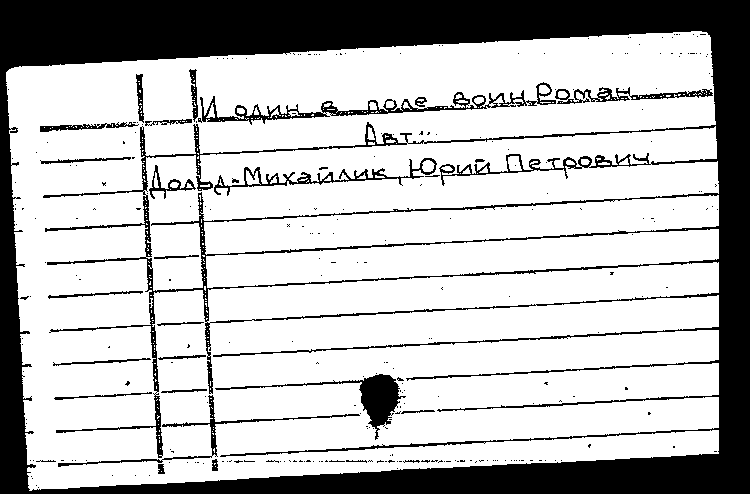 И один в поле воин. Роман.
Авт.:
Дольд-Михайлик, Юрий Петрович.